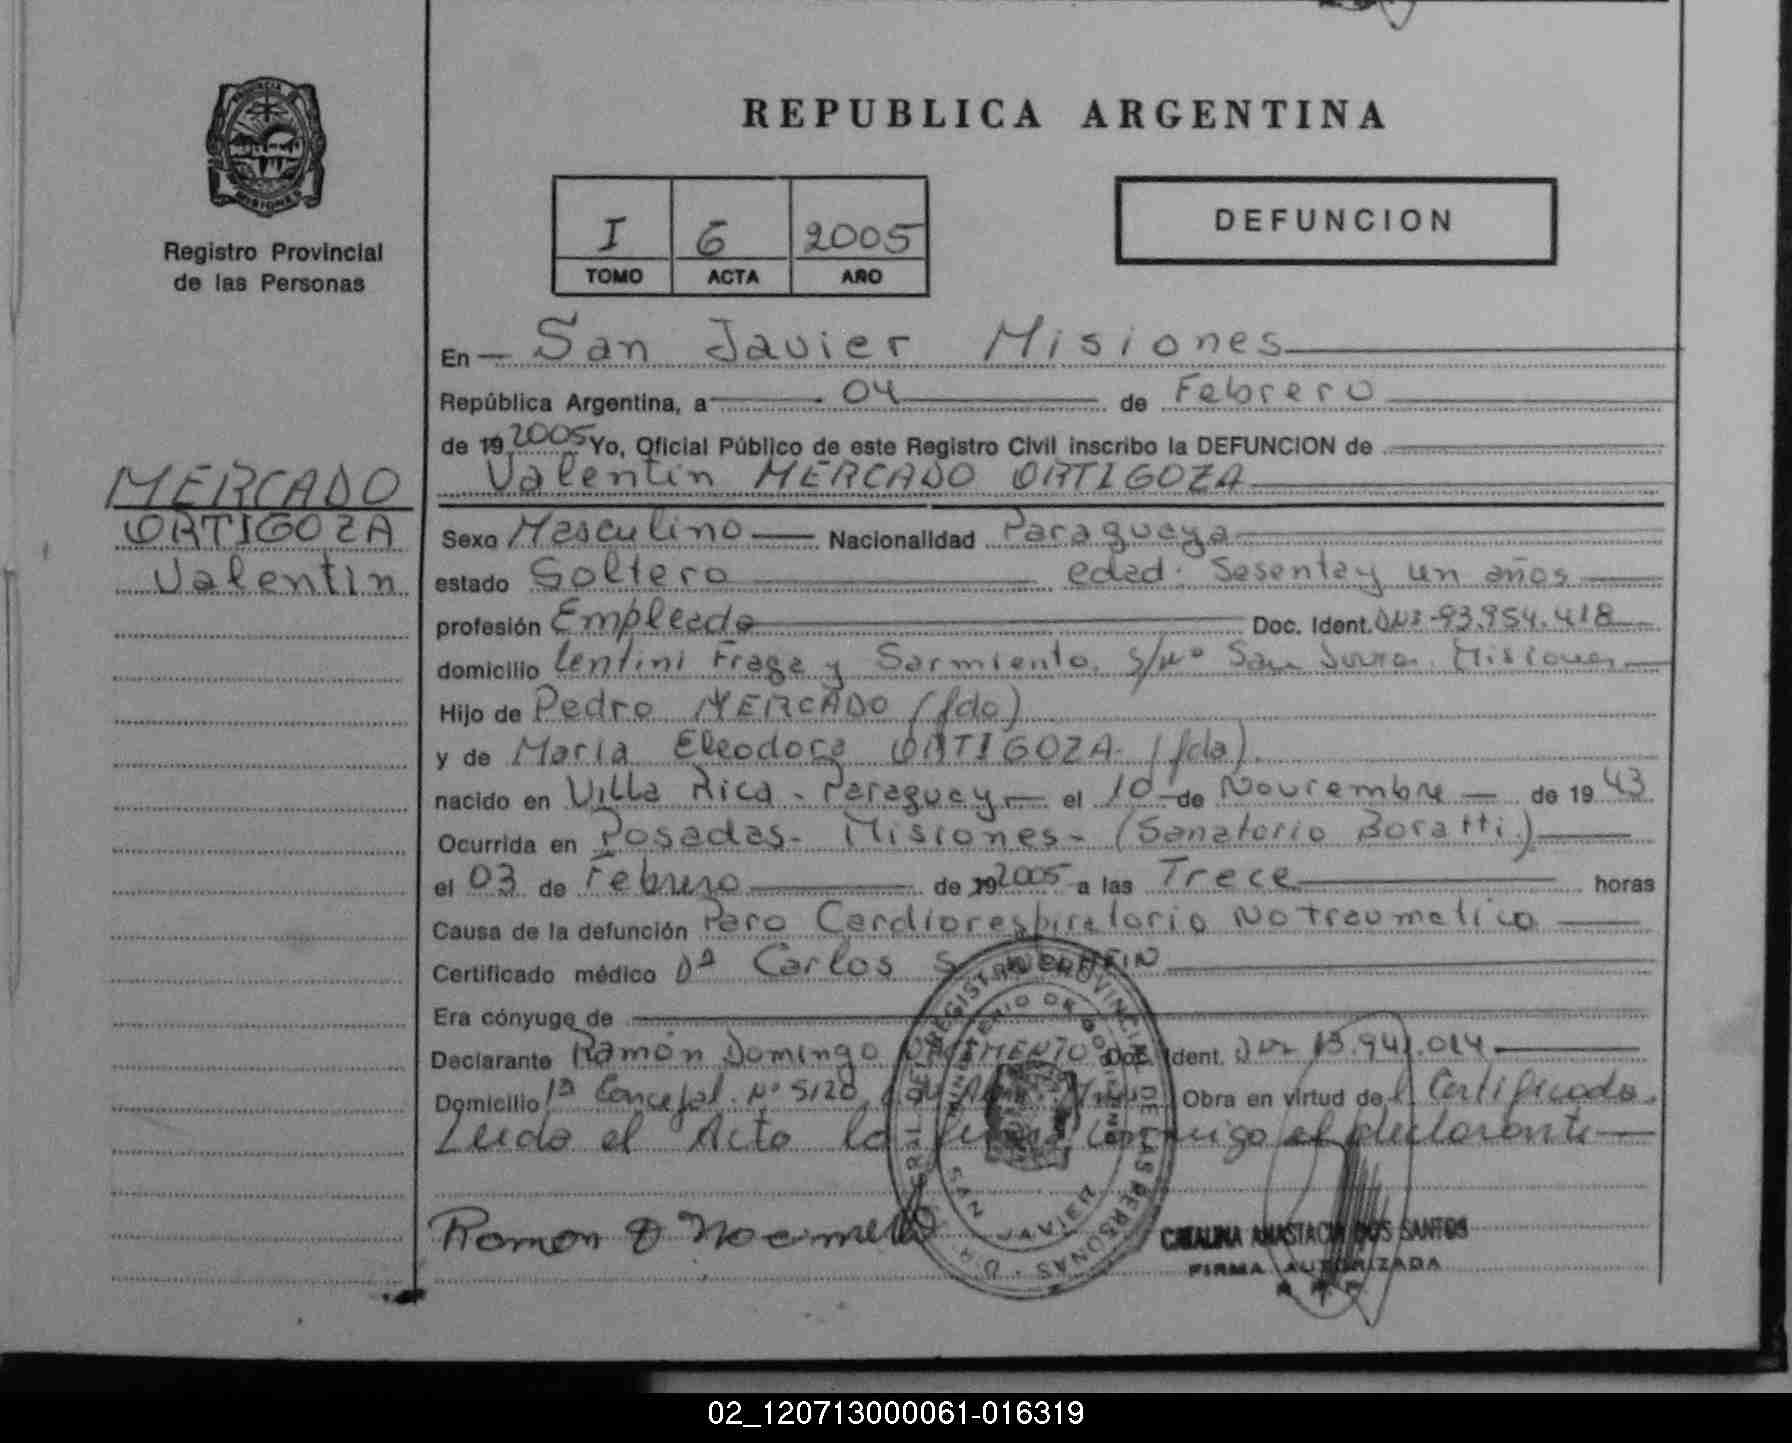 REPUBLICA ARGENTINA
PROVINCIA DE
MISIONES
Registro Provincial
de las Personas
I 6 2005
TOMO ACTA AÑO
DEFUNCION
MERCADO
ORTIGOZA
Valentín
En San Javier Misiones
República Argentina, a 04 de Febrero
de 19 2005 Yo, Oficial Público de este Registro Civil inscribo la DEFUNCION de
Valentín MERCADO ORTIGOZA
Sexo Masculino Nacionalidad Paraguaya
estado Soltero edad: Sesenta y un años
profesión Empleado Doc. Ident. DNI-93.954.418
domicilio Lentini Fraga y Sarmiento. s/nº San Javier. Misiones
Hijo de Pedro MERCADO (fdo)
y de María Eleodora ORTIGOZA. (fda).
nacido en Villa Rica - Paraguay el 10 de Noviembre de 19 43
Ocurrida en Posadas- Misiones- (Sanatorio Boratti.)
el 03 de Febrero de 19 2005 a las Trece horas
Causa de la defunción Paro Cardiorespiratorio No traumatico
Certificado médico Dr Carlos S.
Era cónyuge de
Declarante Ramón Domingo Doc. Ident. DNI 13.941.014
Domicilio 1º Concejal. Nº 5120 Obra en virtud del Certificado.
Leida el Acta la firma conmigo el declarante
REGISTRO PROVINCIAL DE LAS PERSONAS
MINISTERIO DE GOBIERNO
SAN JAVIER
Ramon D
CATALINA ANASTACIA DOS SANTOS
FIRMA AUTORIZADA
02_120713000061-016319